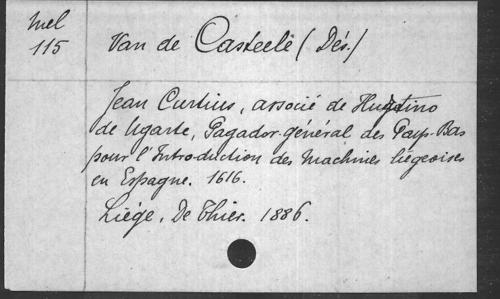 Mel
115
Van de Casteele (Dés.)
Jean Curtius, associé de Hugtino
de Ugarte, Pagador-général des Pays-Bas
pour l'Introduction des Machines liégeoises
en Espagne. 1616.
Liége, De Thier. 1886.